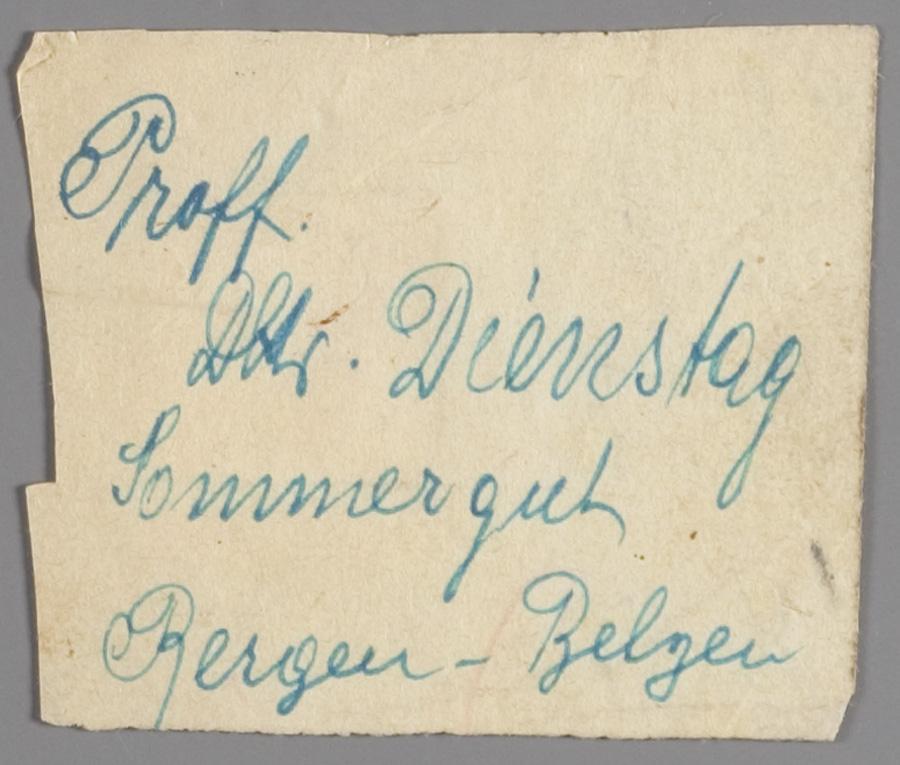 Proff.
Dr. Dienstag
Sommergut
Bergen-Belzen